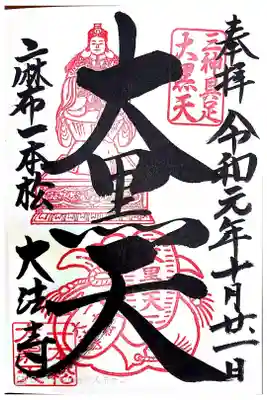 奉拝 令和元年十月廿一日
三福具足
大黒天
大黒天
大黒天
元麻布一本松
大法寺